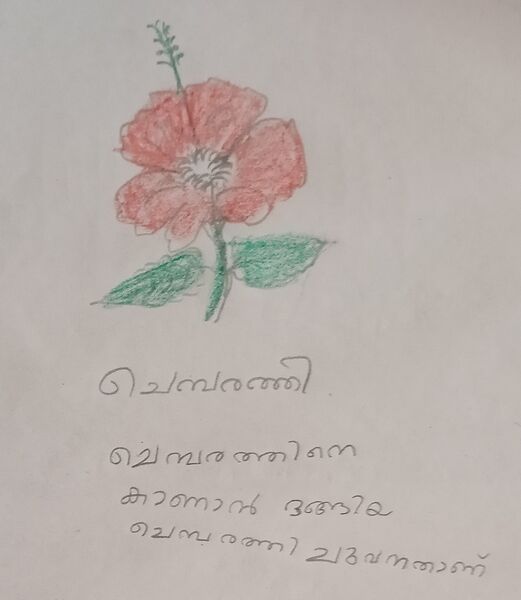 ചെമ്പരത്തി
ചെമ്പരത്തിനെ
കാണാൻ ഭങ്ങിയ
ചെമ്പരത്തി ചുവന്നതാണ്